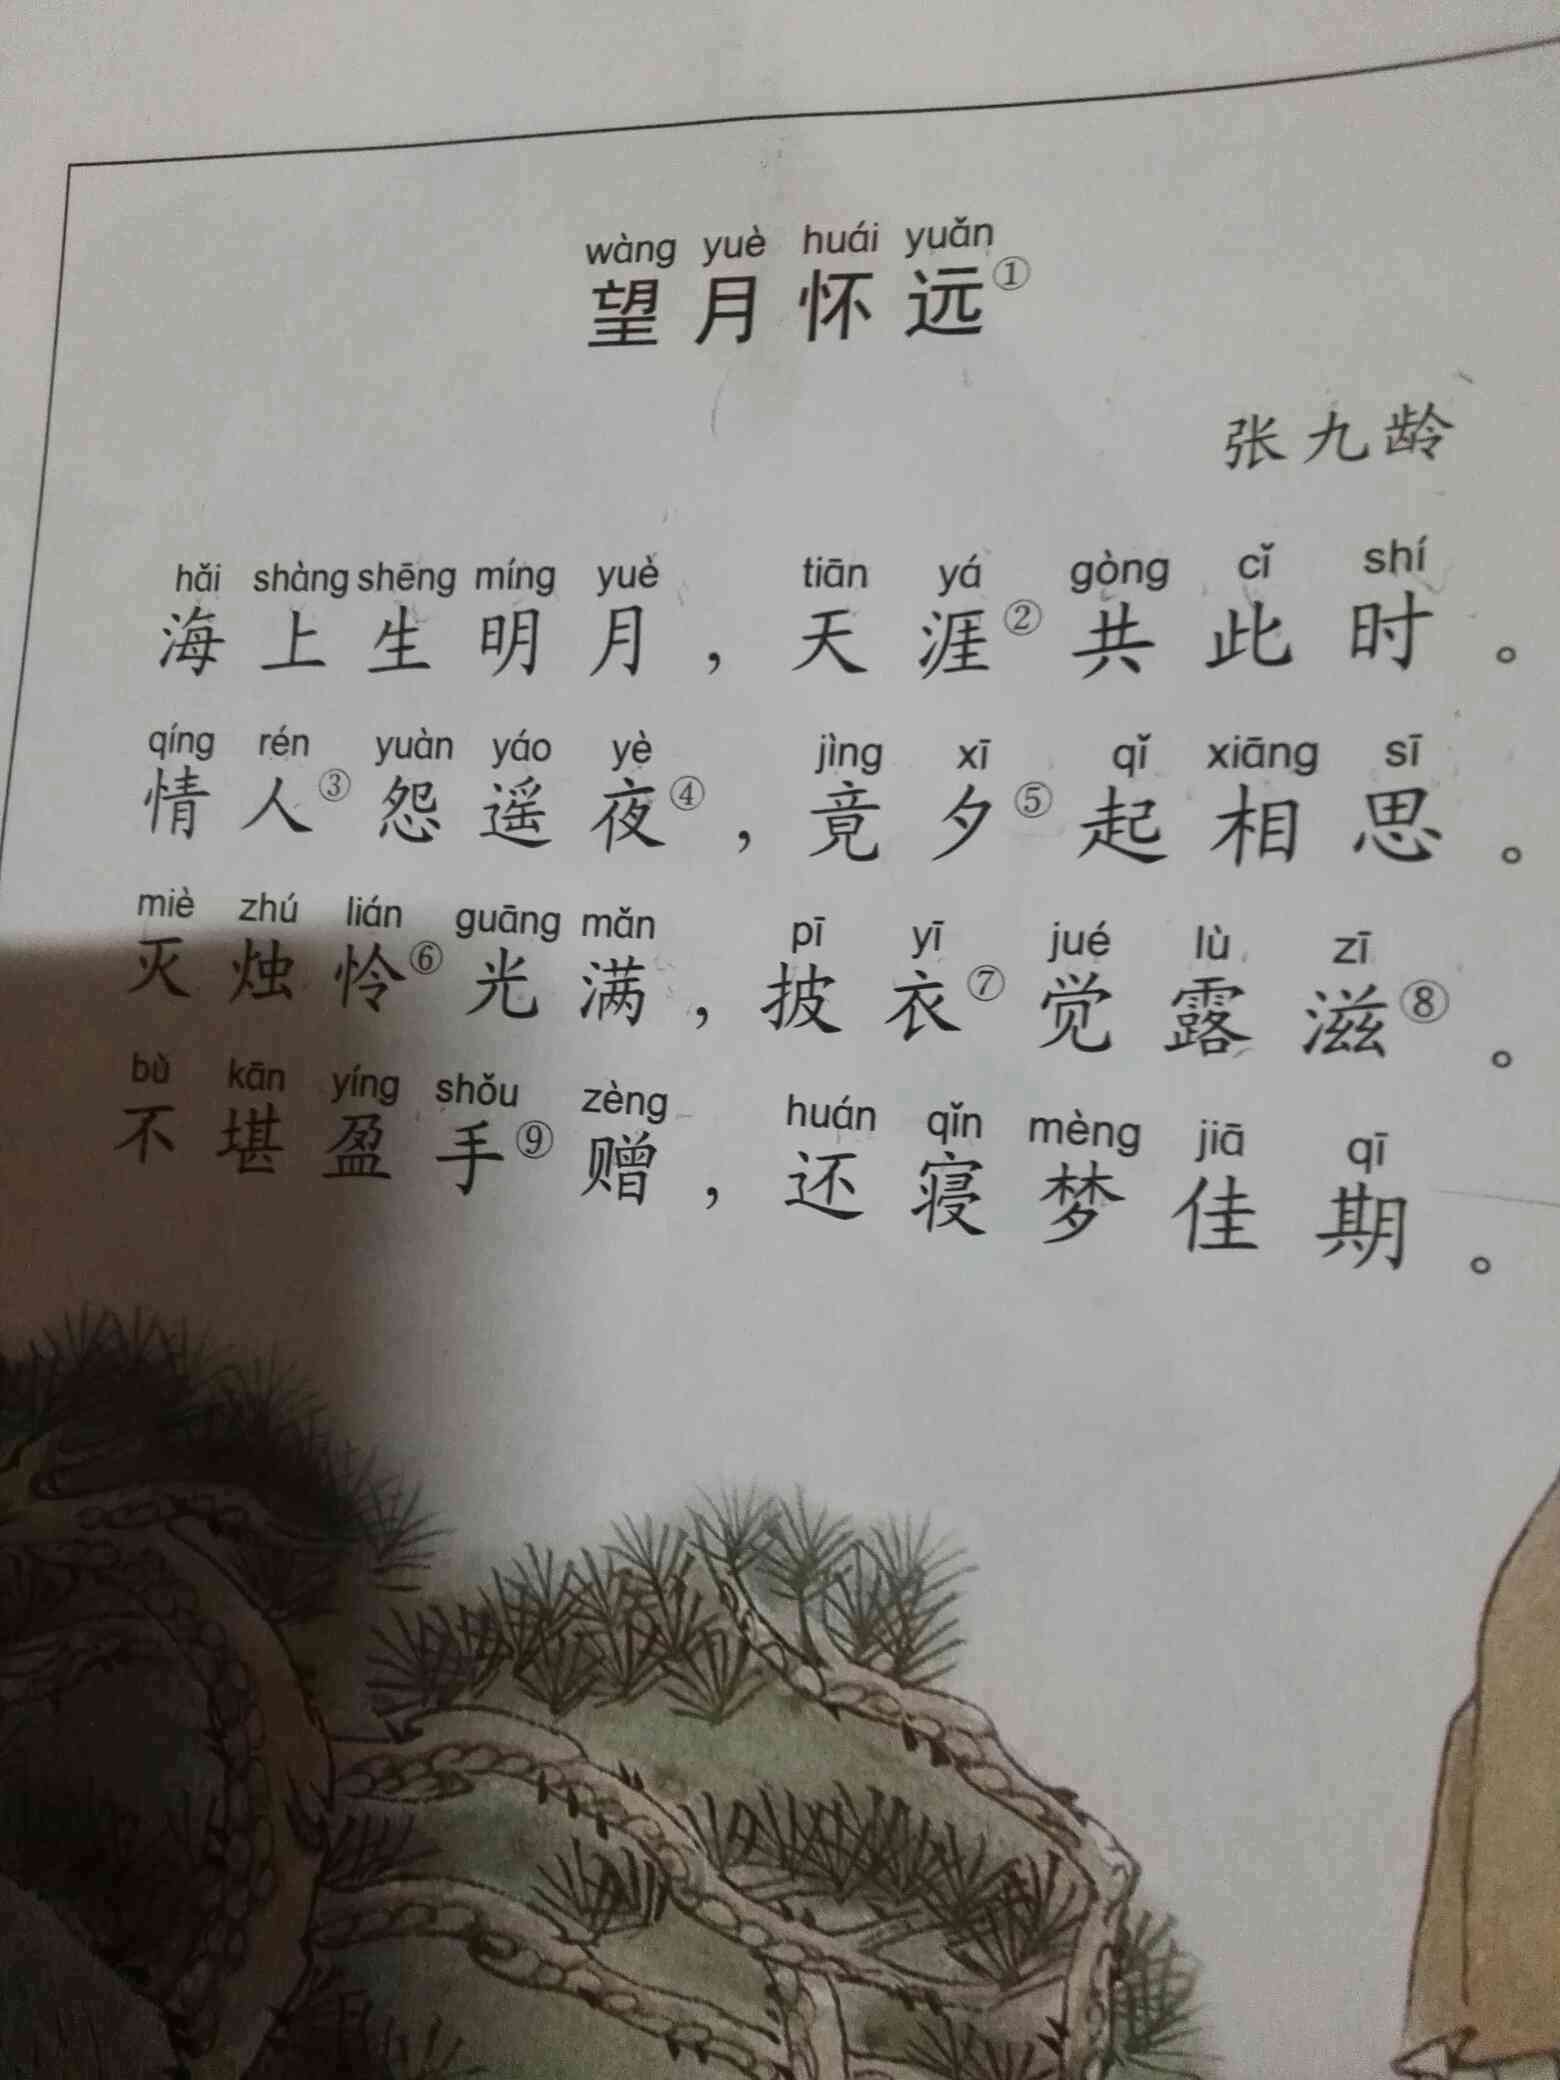 wàng yuè huái yuǎn
望月怀远①
张九龄
hǎi shàng shēng míng yuè tiān yá gòng cǐ shí
海上生明月，天涯②共此时。
qíng rén yuàn yáo yè jìng xī qǐ xiāng sī
情人③怨遥夜④，竟夕⑤起相思。
miè zhú lián guāng mǎn pī yī jué lù zī
灭烛怜⑥光满，披衣⑦觉露滋⑧。
bù kān yíng shǒu zèng huán qǐn mèng jiā qī
不堪盈手⑨赠，还寝梦佳期。